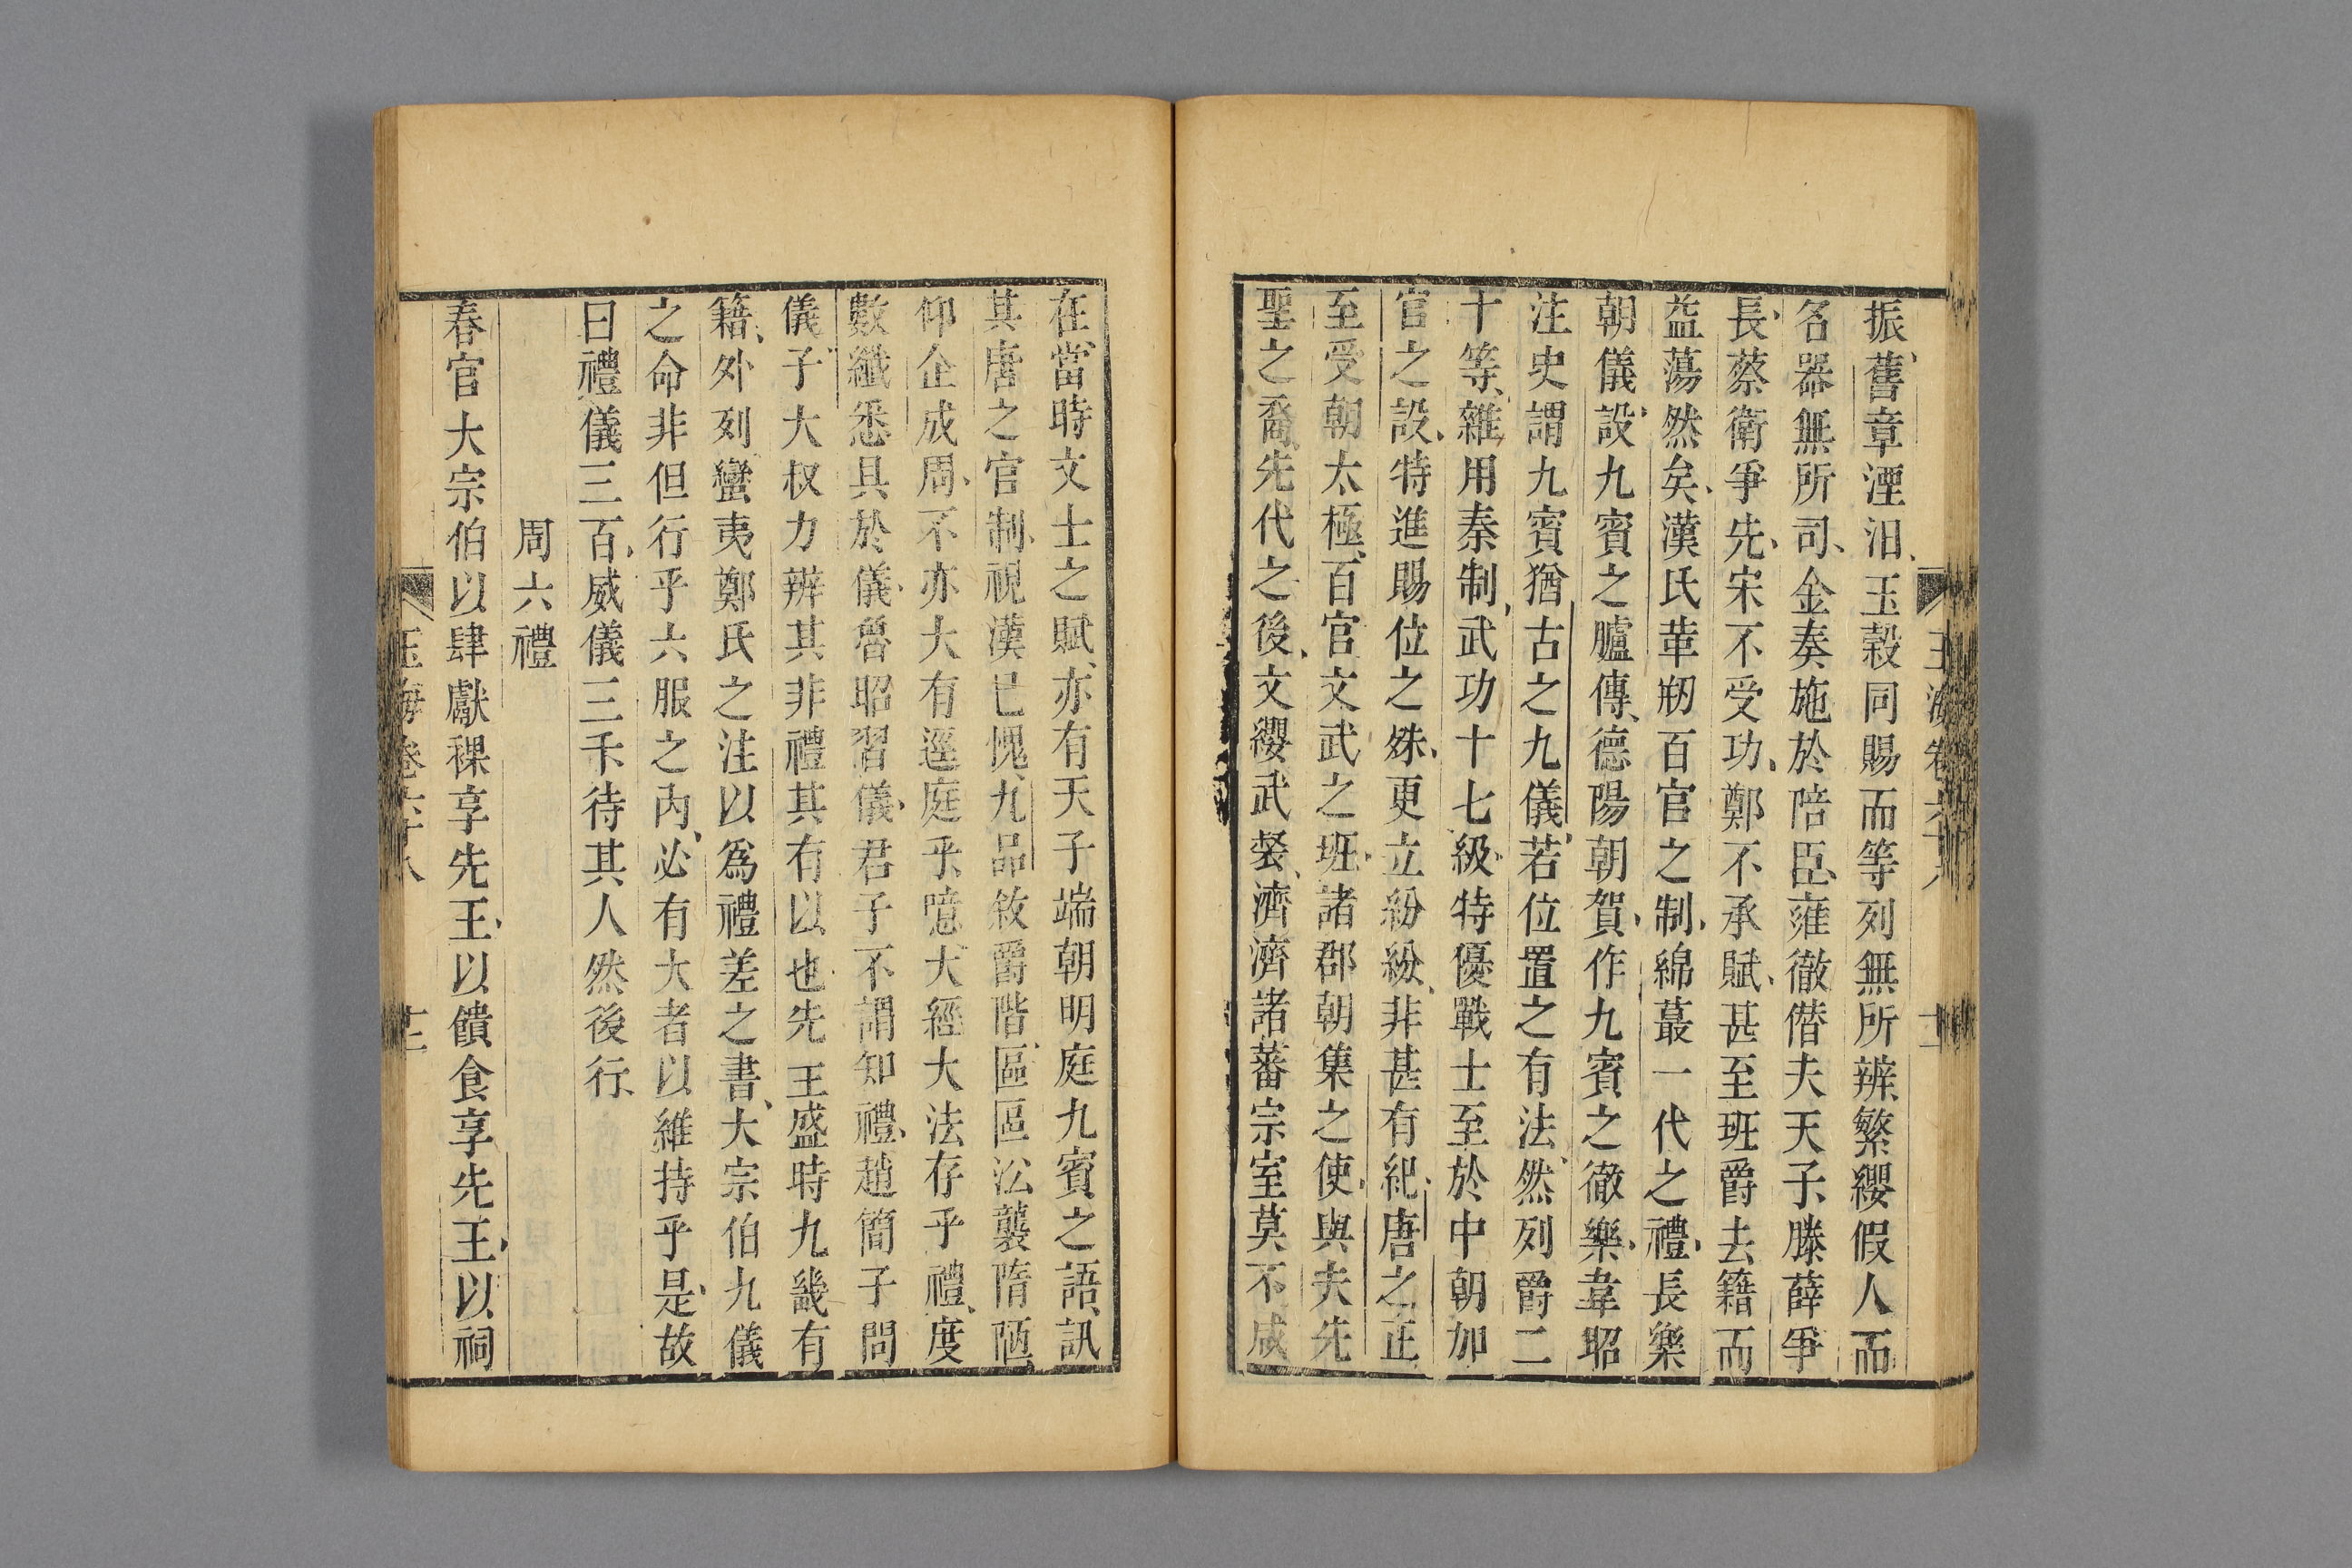 振舊章湮汨玉瑴同賜而等列無所辨繁纓假人而
名器無所司金奏施於陪臣雍徹僭夫天子滕薛爭
長蔡衛爭先宋不受功鄭不承賦甚至班爵去籍而
益蕩然矣漢氏草剏百官之制綿蕞一代之禮長樂
朝儀設九賓之臚傳德陽朝賀作九賓之徹樂韋昭
注史謂九賓猶古之九儀若位置之有法然列爵二
十等雜用秦制武功十七級特優戰士至於中朝加
官之設特進賜位之殊更立紛紛非甚有紀唐之正
至受朝太極百官文武之班諸郡朝集之使與夫先
聖之裔先代之後文纓武𧚌濟濟諸蕃宗室莫不咸
在當時文士之賦亦有天子端朝明庭九賓之語訊
其唐之官制視漢已愧九品敘爵階區區㳂襲隋陋
仰企成周不亦大有逕庭乎噫大經大法存乎禮度
數纖悉具於儀魯昭習儀君子不謂知禮趙簡子問
儀子大叔力辨其非禮其有以也先王盛時九畿有
籍外列蠻夷鄭氏之注以爲禮差之書大宗伯九儀
之命非但行乎六服之內必有大者以維持乎是故
曰禮儀三百威儀三千待其人然後行
周六禮
春官大宗伯以肆獻祼享先王以饋食享先王以祠
玉海卷六十八